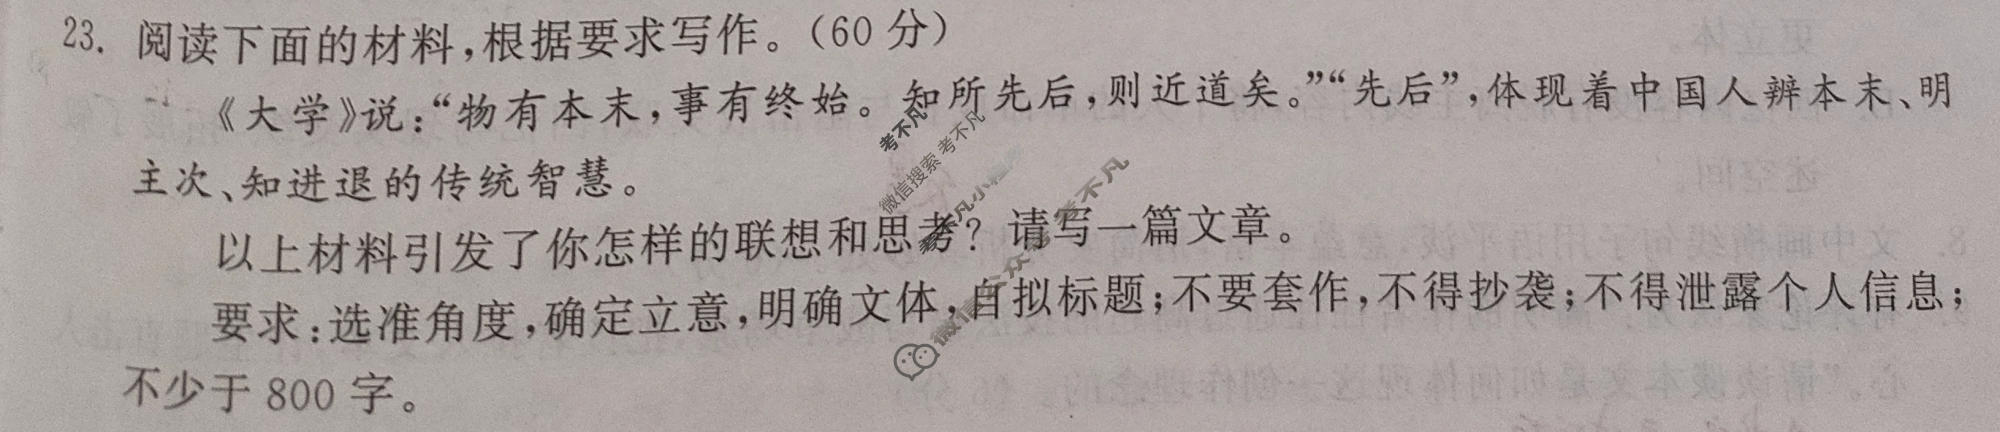 23. 阅读下面的材料,根据要求写作。(60 分)
《大学》说:“物有本末,事有终始。知所先后,则近道矣。”“先后”,体现着中国人辨本末、明
主次、知进退的传统智慧。
以上材料引发了你怎样的联想和思考?请写一篇文章。
要求:选准角度,确定立意,明确文体,自拟标题;不要套作,不得抄袭;不得泄露个人信息;
不少于 800 字。
考不凡
微信搜索 考不凡
考不凡